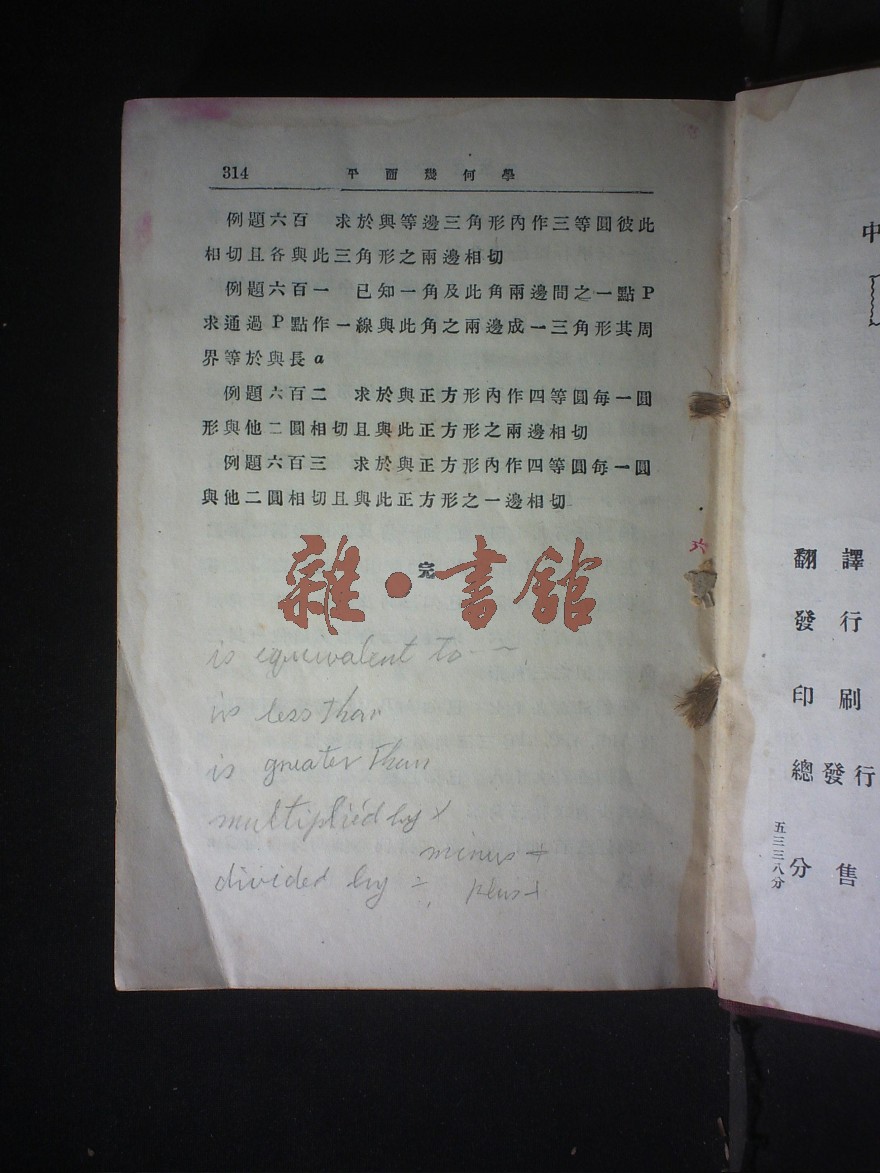 314 平面幾何學
例題六百 求於與等邊三角形內作三等圓彼此
相切且各與此三角形之兩邊相切
例題六百一 已知一角及此角兩邊間之一點P
求通過P點作一線與此角之兩邊成一三角形其周
界等於與長a
例題六百二 求於與正方形內作四等圓每一圓
形與他二圓相切且與此正方形之兩邊相切
例題六百三 求於與正方形內作四等圓每一圓
與他二圓相切且與此正方形之一邊相切
完
雜·書館
is equivalent to
is less than
is greater than
multiplied by ×
minus
divided by ÷, plus +
中
翻譯
發行
印刷
總發行
分售
五三三八分